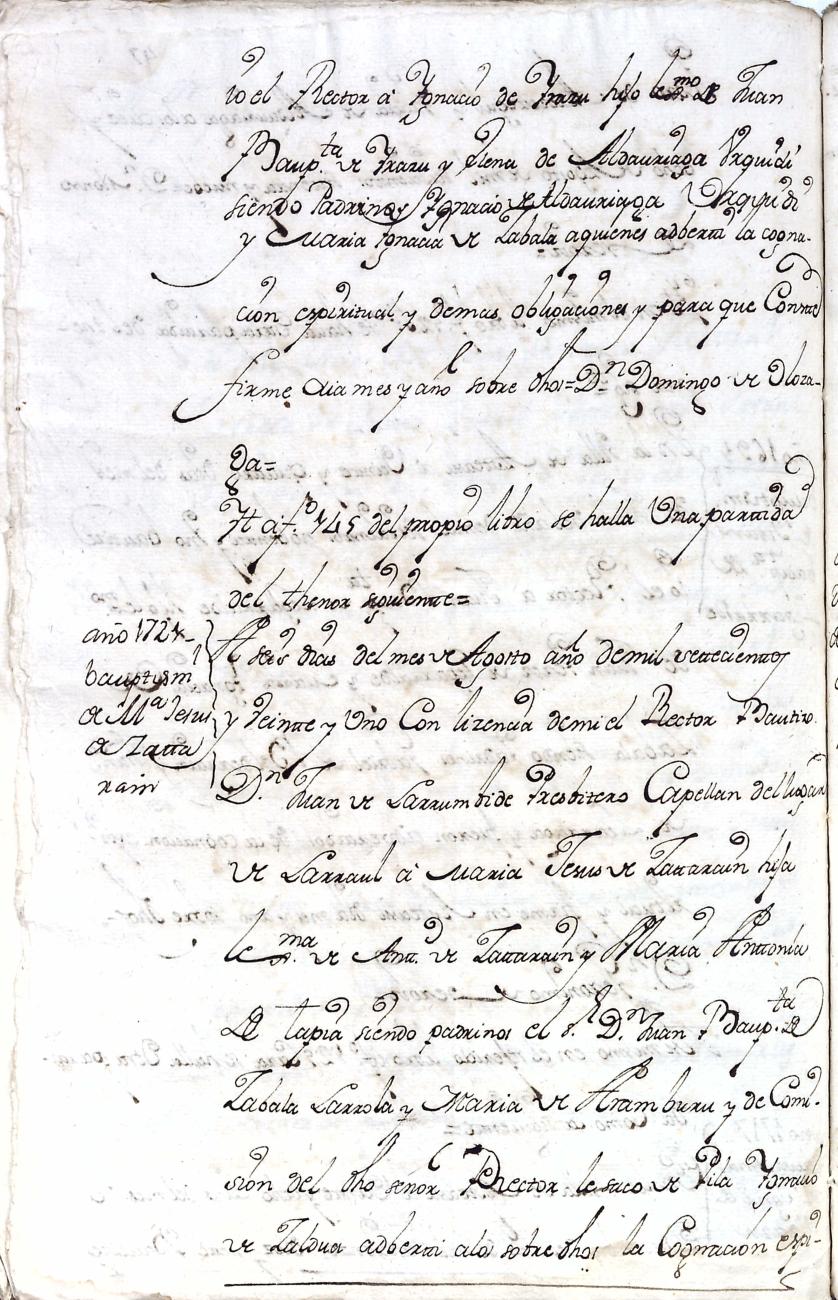 io el Rector a Ygnacio de Yraru hijo lex.mo de Juan
Baup.ta de Yraru y Elena de Aldauriaga Vrquidi
siendo Padrinos Ygnacio de Aldauriaga Vrquidi
y Maria Ygnacia de Zabala aquienes adberti la cogna-
cion espiritual y demas obligaciones y para que Conste
firme dia mes y año sobre dhos= Dn Domingo de Oloza-
ga=
Yt a f.o 145 del propio libro se halla Una partida
del thenor siguiente=
año 1721
bauptism
de M.a Jesus
de Zatta
rain
A seis dias del mes de Agosto año de mil settecientos
y Veintte y Uno Con lizencia de mi el Rector Bautizo
D.n Juan de Larrumbide Presbitero Capellan del lugar
de Larraul a Maria Jesus de Zattarain hija
lex.ma de Antt.o de Zattarain y Maria Anttonia
de tapia siendo padrinos el s.r D.n Juan Baup.ta de
Zabala Larrola y Maria de Aramburu y de Comi-
sion del dho señor Rector le saco de Pila Ygnacio
de Zaldua adberti alos sobre dhos la Cognacion espi-